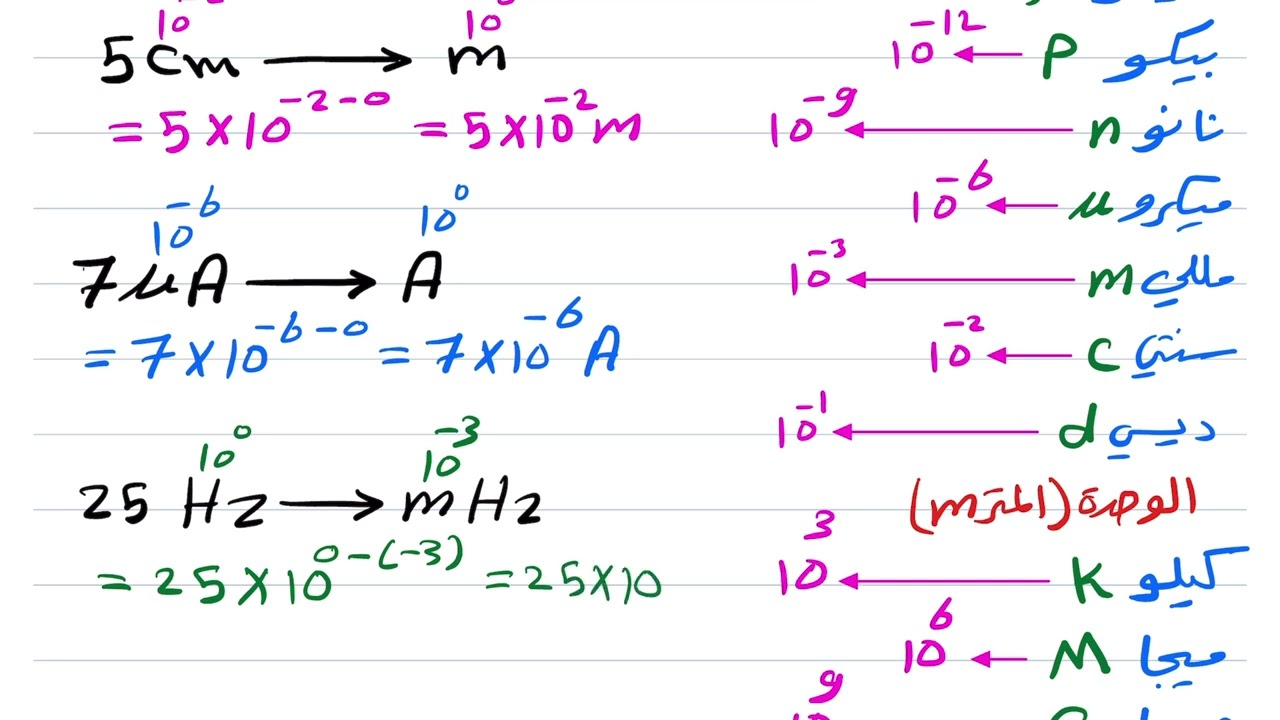 10⁻² 10⁰
5 cm → m
= 5 × 10⁻²⁻⁰ = 5 × 10⁻² m
10⁻⁶ 10⁰
7 μA → A
= 7 × 10⁻⁶⁻⁰ = 7 × 10⁻⁶ A
10⁰ 10⁻³
25 Hz → mHz
= 25 × 10⁰⁻⁽⁻³⁾ = 25 × 10
بيكو P ← 10⁻¹²
نانو n ← 10⁻⁹
ميكرو μ ← 10⁻⁶
مللي m ← 10⁻³
سنتي c ← 10⁻²
ديسي d ← 10⁻¹
الوحدة (المتر m)
كيلو K ← 10³
ميجا M ← 10⁶
9